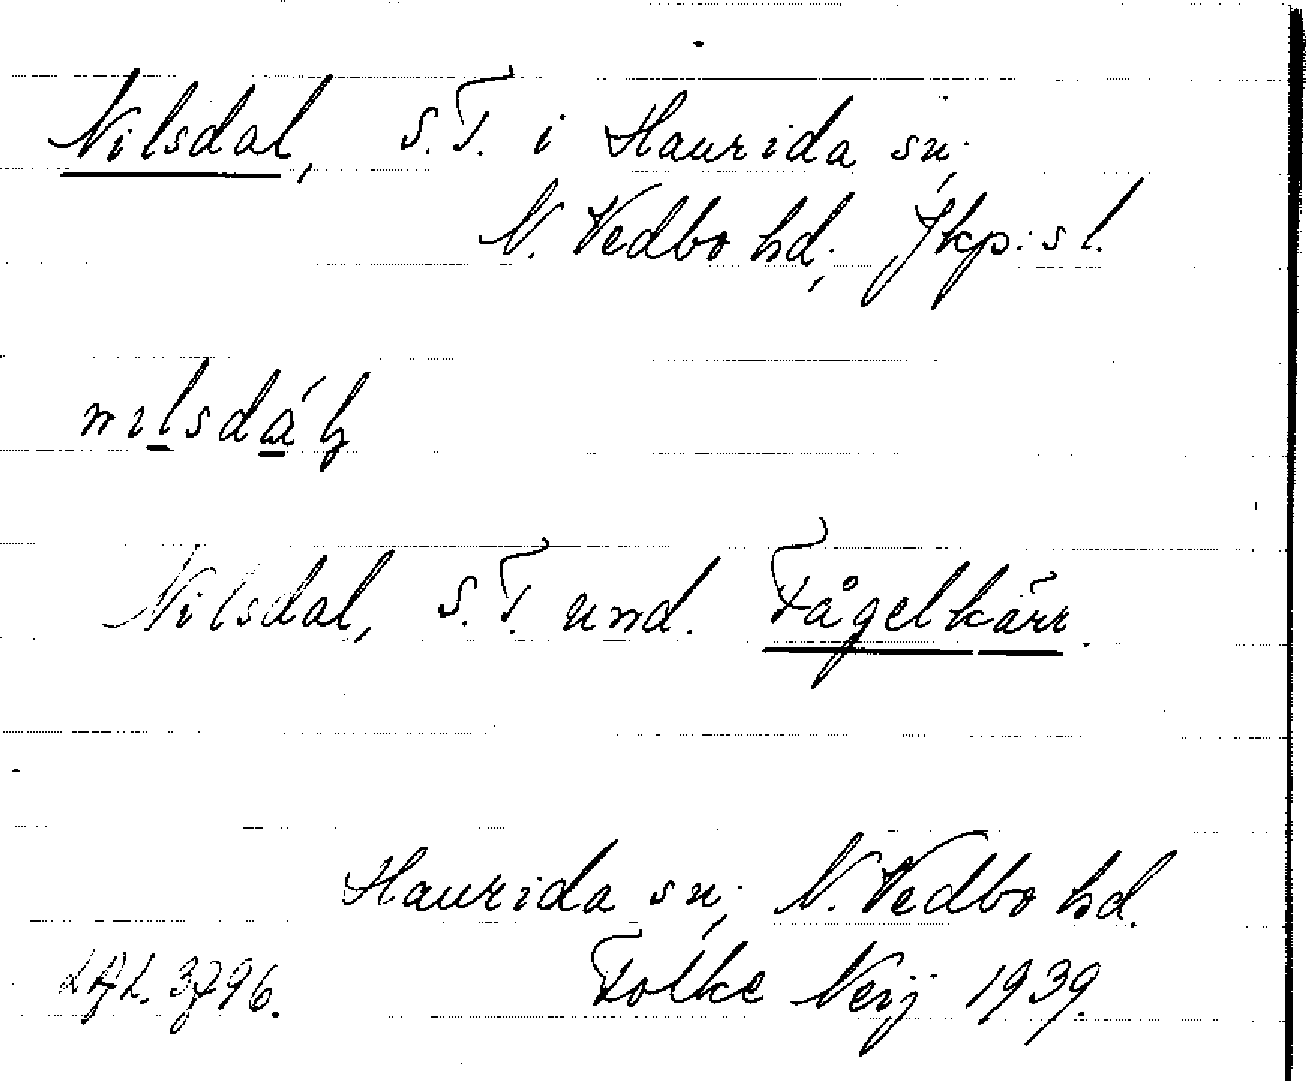 Nilsdal, S.T. i Haurida sn,
N. Vedbo hd, Jkp:s l.
Nilsdal, S.T. und. Fågelkärr.
Haurida sn, N. Vedbo hd.
Folke Neij 1939.